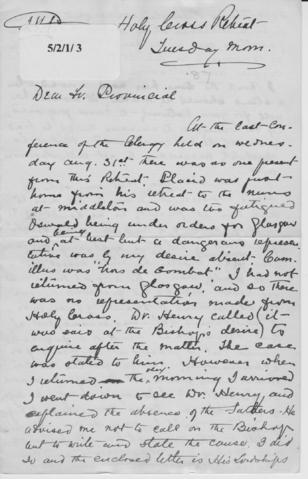 5/2/1/3
Holy Cross Retreat
Tuesday Morn.
'87
Dear Fr. Provincial
At the last Con-
ference of the Clergy held on wednes-
day Aug. 31st there was no one present
from this Retreat. Placid was just
home from his retreat to the nuns
at middleton and was too fatigued
Oswald being under orders for Glasgow
and being at best but a dangerous represen
tative was by my desire absent. Cam-
illus was "hors de combat" I had not
returned from Glasgow, and so there
was no representation made from
Holy Cross. Dr. Henry called (it
was said at the Bishop's desire) to
enquire after the matter. The case
was stated to him. However when
I returned the very morning I arrived
I went down to see Dr. Henry and
explained the absence of the Fathers. He
advised me not to call on the Bishop
but to write and state the cause. I did
so and the enclosed letter is His Lordships